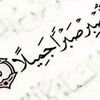 صَبْرًا جَمِيلًا